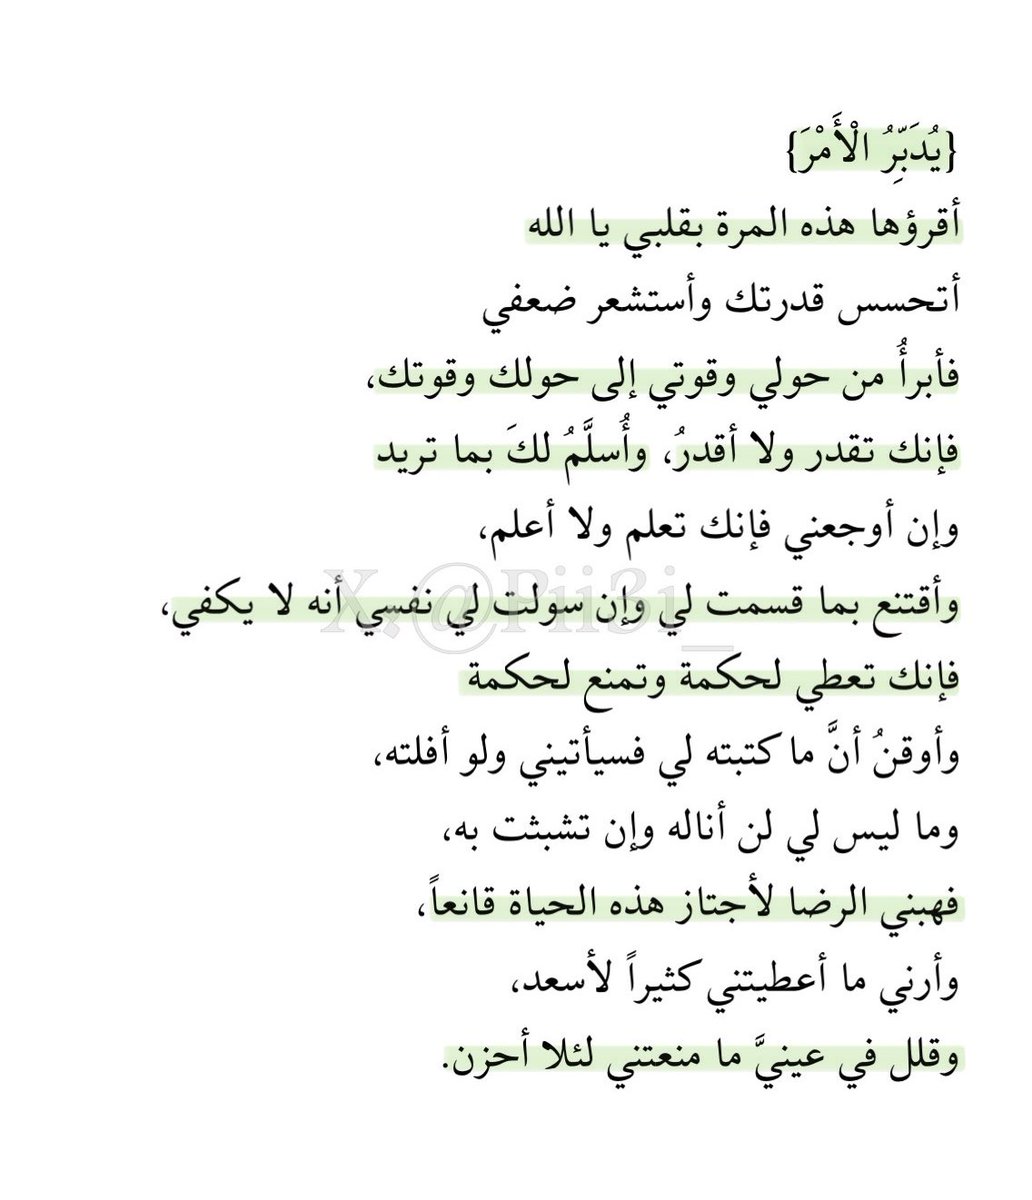 {يُدَبِّرُ الْأَمْرَ}
أقرؤها هذه المرة بقلبي يا الله
أتحسس قدرتك وأستشعر ضعفي
فأبرأُ من حولي وقوتي إلى حولك وقوتك،
فإنك تقدر ولا أقدرُ، وأُسلَّمُ لكَ بما تريد
وإن أوجعني فإنك تعلم ولا أعلم،
وأقتنع بما قسمت لي وإن سولت لي نفسي أنه لا يكفي،
X:@Pii3i_
فإنك تعطي لحكمة وتمنع لحكمة
وأوقنُ أنَّ ما كتبته لي فسيأتيني ولو أفلته،
وما ليس لي لن أناله وإن تشبثت به،
فهبني الرضا لأجتاز هذه الحياة قانعاً،
وأرني ما أعطيتني كثيراً لأسعد،
وقلل في عينيَّ ما منعتني لئلا أحزن.